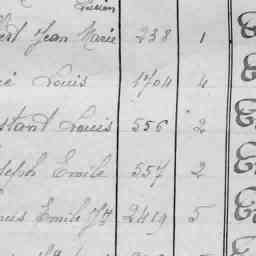 Lucien
Jean Marie 238 1
Louis 1704 4
stant Louis 556 2
seph Emile 557 2
Emile 2419 5